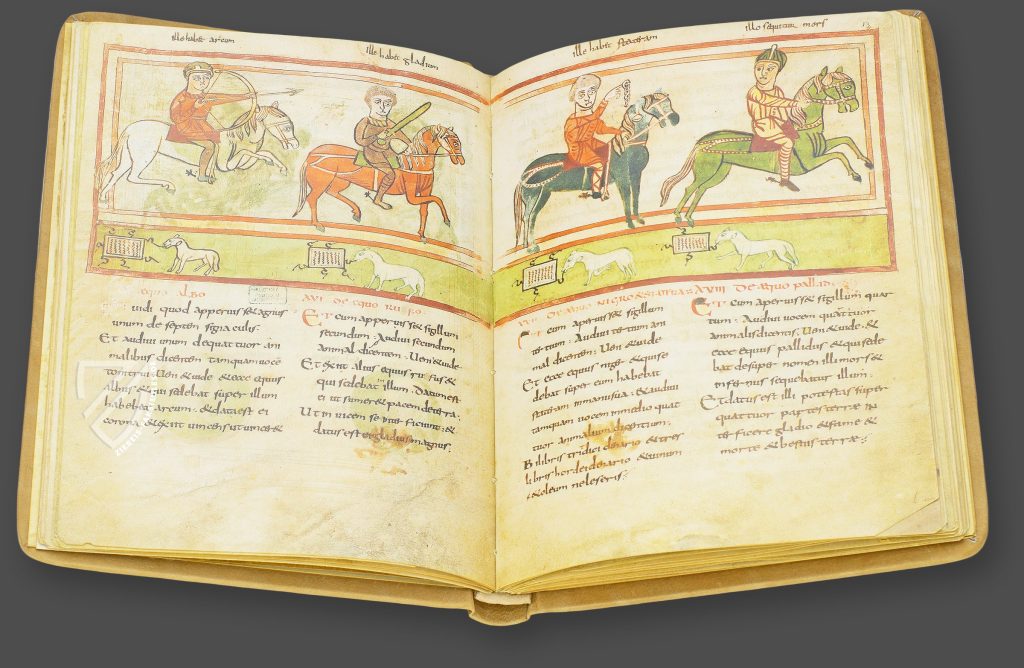 ille habet arcum
ille habet gladium
ille habet stateram
ille sequitur mors
equo albo
uidi quod apperuisset agnus
unum de septem sigiaculis.
Et audiui unum de quattuor an
malibus dicentem tamquam uoce
tonitrui. Ueni & uide & ecce equus
albus & qui sedebat super illum
habebat arcum. & data est ei
corona & exiit uincens ut uinceret
XVI DE equo RUFO
Et cum apperuisset sigillum
secundum. Audiui secundum
animal dicentem. Ueni & uide
Et exiit alius equus rufus &
qui sedebat illum. Datum est
ei ut sumeret pacem de terra.
Ut inuicem se inter ficiunt. &
datus est ei gladius magnus.
NIGRO & STATERA
Et cum aperuisset sigillum
tertium. Audiui tertium ani
mal dicentem. Ueni & uide
Et ecce equus niger & qui se
debat super eum habebat
stateram in manu sua. & audiui
tamquam uocem in medio quat
tuor animalium dicentium.
Bilibris tritici denario & tres
libris hordei denario & uinum
& oleum ne leseris.
XVIII DE equo PALLIDO
Et cum aperuisset sigillum quar
tum. Audiui uocem quarti
animalis dicentis. Ueni & uide. &
ecce equus pallidus & qui sede
bat desuper nomen illi mors &
infernus sequebatur illum.
Et datus est illi potestas super
quattuor partes terrae in
terficere gladio & fame &
morte & bestiis terrae.